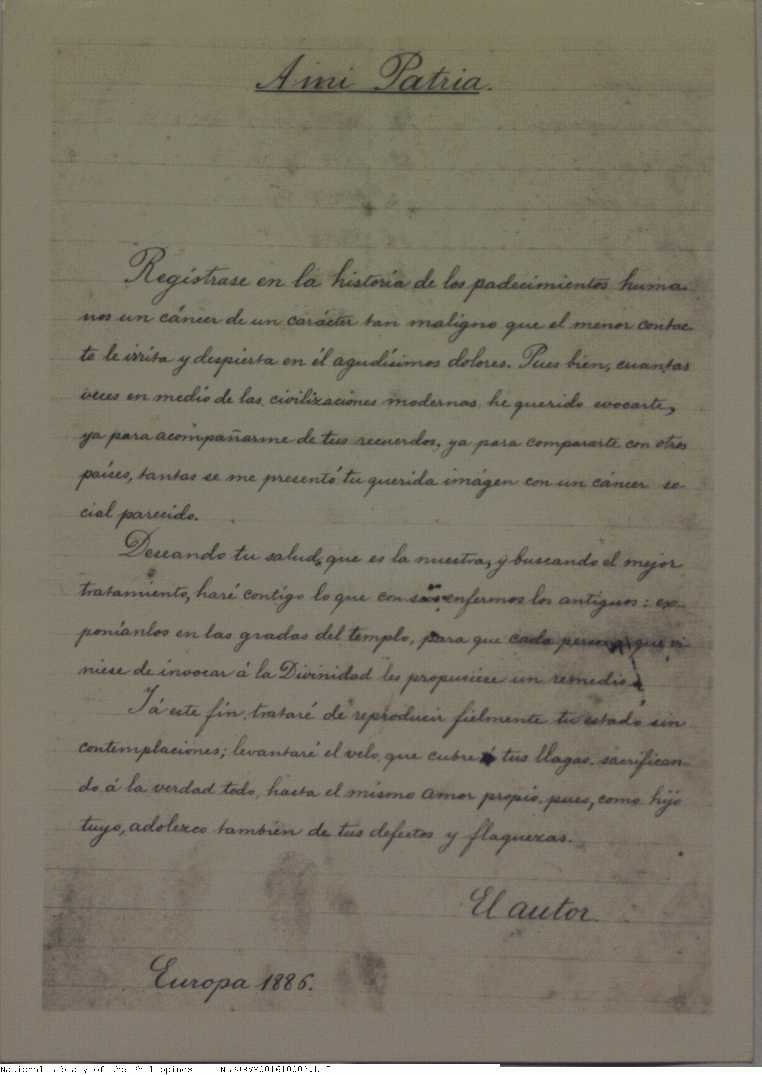 A mi Patria.
Regístrase en la historia de los padecimientos huma-
nos un cáncer de un carácter tan maligno que el menor contac-
to le irrita y despierta en él agudísimos dolores. Pues bien, cuantas
veces en medio de las civilizaciones modernas he querido evocarte,
ya para acompañarme de tus recuerdos, ya para compararte con otros
países, tantas se me presentó tu querida imágen con un cáncer so-
cial parecido.
Deseando tu salud, que es la nuestra, y buscando el mejor
tratamiento, haré contigo lo que con sus enfermos los antiguos: ex-
poníanlos en las gradas del templo, para que cada persona que vi-
niese de invocar á la Divinidad les propusiese un remedio.
Y á este fin, trataré de reproducir fielmente tu estado sin
contemplaciones; levantaré el velo que cubre tus llagas, sacrifican-
do á la verdad todo, hasta el mismo amor propio, pues, como hijo
tuyo, adolezco también de tus defectos y flaquezas.
El autor.
Europa 1886.
National Library of the Philippines